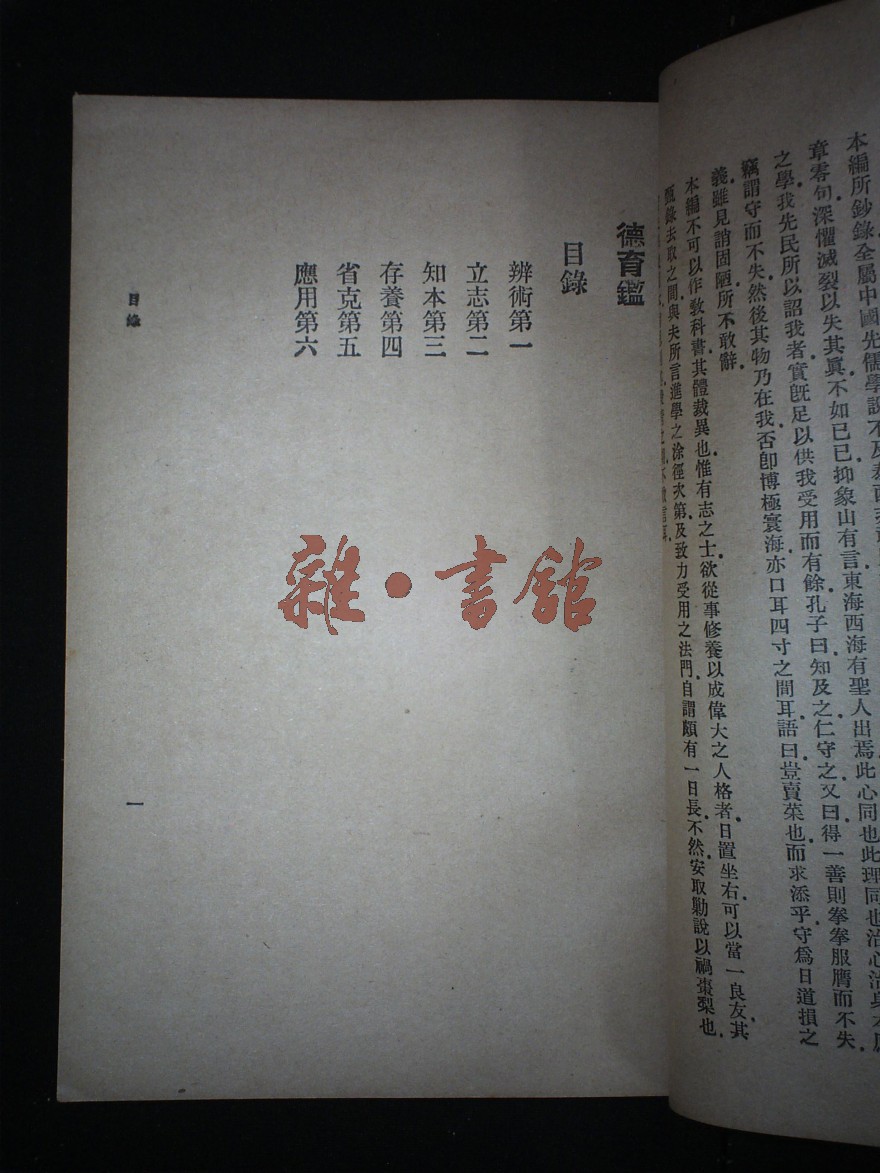 本編所鈔錄全屬中國先儒學說不及泰西
章零句深懼滅裂以失其眞不如已已抑象山有言東海西海有聖人出焉此心同也此理同也治心治身
之學我先民所以詔我者實旣足以供我受用而有餘孔子曰知及之仁守之又曰得一善則拳拳服膺而不失
竊謂守而不失然後其物乃在我否卽博極寰海亦口耳四寸之間耳語曰豈賣菜也而求添乎守爲日道損之
義雖見誚固陋所不敢辭
本編不可以作敎科書其體裁異也惟有志之士欲從事修養以成偉大之人格者日置坐右可以當一良友其
甄錄去取之間與夫所言進學之涂徑次第及致力受用之法門自謂頗有一日長不然安取勦說以禍棗梨也
德育鑑
目錄
辨術第一
立志第二
知本第三
存養第四
省克第五
應用第六
目錄
一
雜·書館